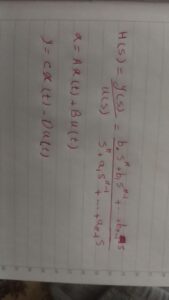 H(s) = y(s)/u(s) = b₀sⁿ + b₁sⁿ⁻¹ + ... bₙ₋₁s / sⁿ + a₁sⁿ⁻¹ + ... + aₙ₋₁s
ẋ = Ax(t) + Bu(t)
y = cx(t) - Du(t)